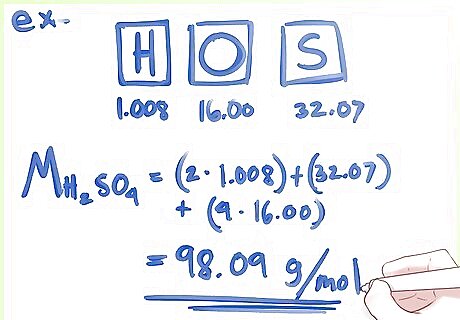 ex-
H O S
1.008 16.00 32.07
M H₂SO₄ = (2 · 1.008) + (32.07)
+ (4 · 16.00)
= 98.09 g/mol